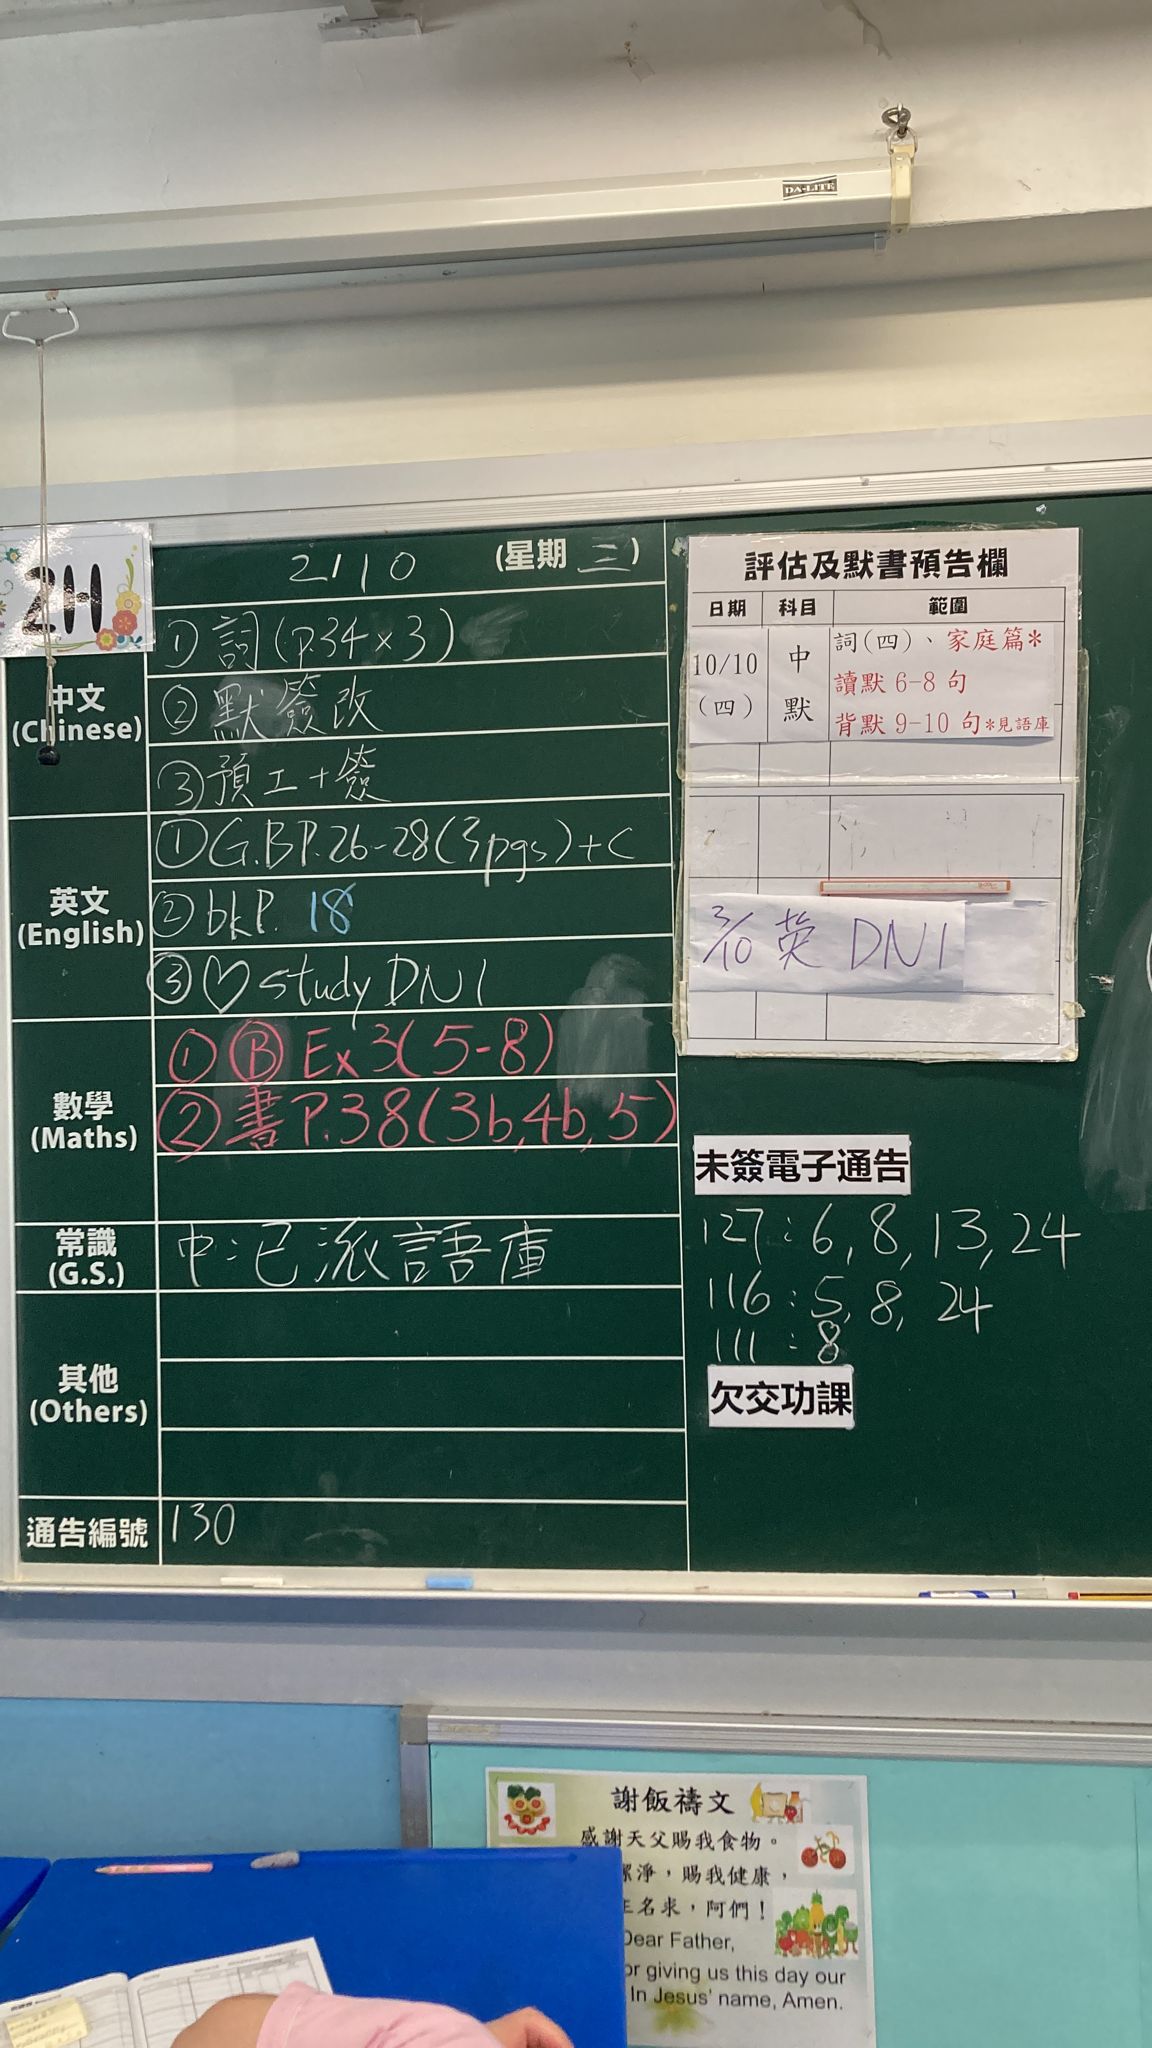 DA-LITE
2H
2/10 (星期三)
中文
(Chinese)
① 詞(P.34×3)
② 默簽改
③ 預工+簽
英文
(English)
① G.B P.26-28(3pgs)+C
② bk P. 18
③ ♡ study DN1
數學
(Maths)
① Ⓑ Ex 3(5-8)
② 書P.38(3b,4b,5)
常識
(G.S.)
中:已派語庫
其他
(Others)
通告編號
130
評估及默書預告欄
日期 科目 範圍
10/10 (四) 中默 詞(四)、家庭篇*
讀默 6-8 句
背默 9-10 句*見語庫
3/10 英 DN1
未簽電子通告
127:6, 8, 13, 24
116:5, 8, 24
111:8
欠交功課
謝飯禱文
感謝天父賜我食物。
潔淨,賜我健康,
名求,阿們!
Dear Father,
or giving us this day our
In Jesus' name, Amen.